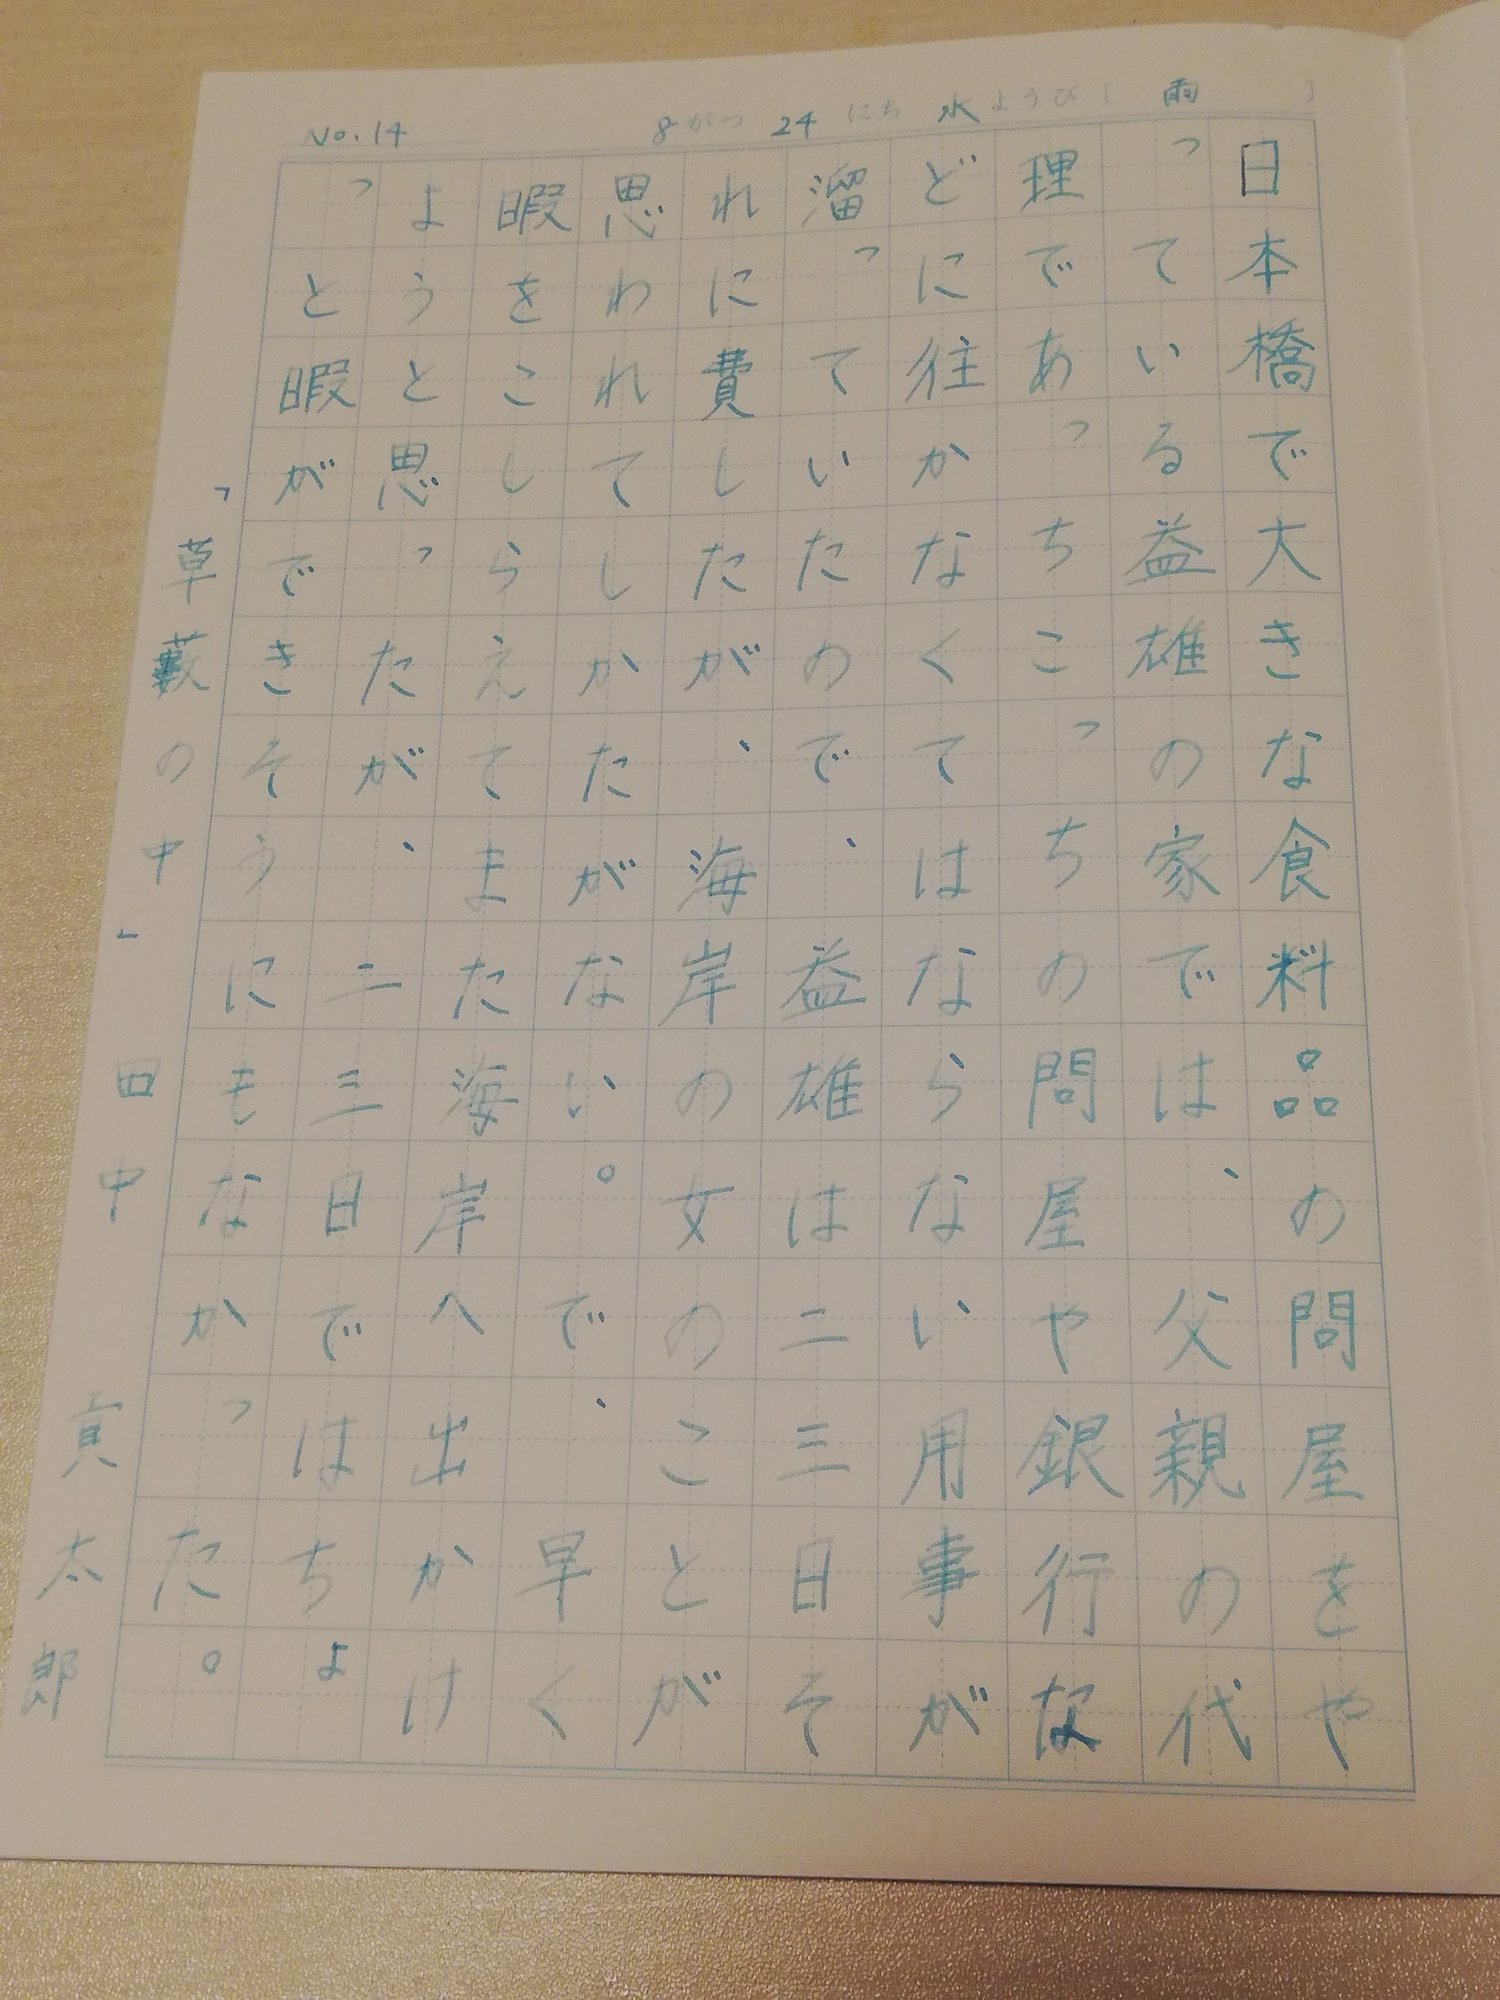 No.14 8がつ24にち水ようび[雨]
日本橋で大きな食料品の問屋をや
っている益雄の家では、父親の代
理であっちこっちの問屋や銀行な
どに往かなくてはならない用事が
溜っていたので、益雄は二三日そ
れに費したが、海岸の女のことが
思われてしかたがない。で、早く
暇をこしらえてまた海岸へ出かけ
ようと思ったが、二三日ではちょ
っと暇ができそうにもなかった。
「草藪の中」田中貢太郎